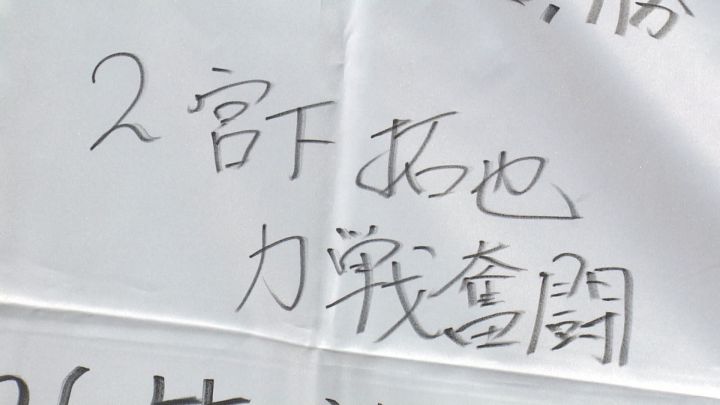 2 宮下 拓也
力戦奮闘